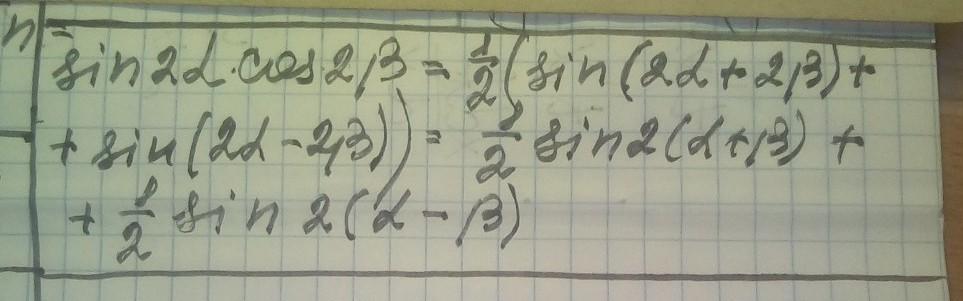 n
sin2α·cos2β = 1/2(sin(2α+2β)+
+ sin(2α-2β)) = 1/2 sin2(α+β) +
+ 1/2 sin 2(α-β)